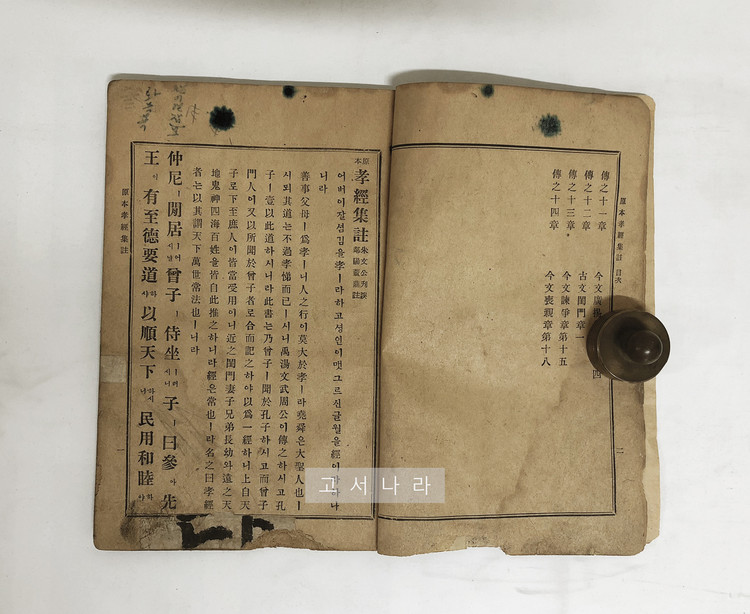 原本孝經集註 目次 二
傳之十一章 今文廣 四
傳之十二章 古文閨門章一
傳之十三章 今文諫爭章第十五
傳之十四章 今文喪親章第十八
原本 孝經集註 朱文公刊誤 鄱陽董鼎註
어버이잘셤김을孝ㅣ라하고성인이맷그르신글월을經이라하나
니라
善事父母ㅣ爲孝ㅣ니人之行이莫大於孝ㅣ라堯舜은大聖人也ㅣ
시되其道는不過孝悌而已ㅣ시니禹湯文武周公이傳之하시고孔
子ㅣ壹以此道하시니라此書는乃曾子ㅣ聞於孔子하시고而曾子
門人이又以所聞於曾子者로合而記之하야以爲一經하니上自天
子로下至庶人이皆當受用이니近之閨門妻子兄弟長幼와遠之天
地鬼神四海百姓을皆自此推之하니라經은常也ㅣ라名之曰孝經
者는以其謂天下萬世常法也ㅣ니라
仲尼ㅣ閒居ㅣ어시늘曾子ㅣ侍坐ㅣ러시니子ㅣ曰參아先
王이有至德要道하샤以順天下하시니民用和睦하야
原本孝經集註 一
고서나라